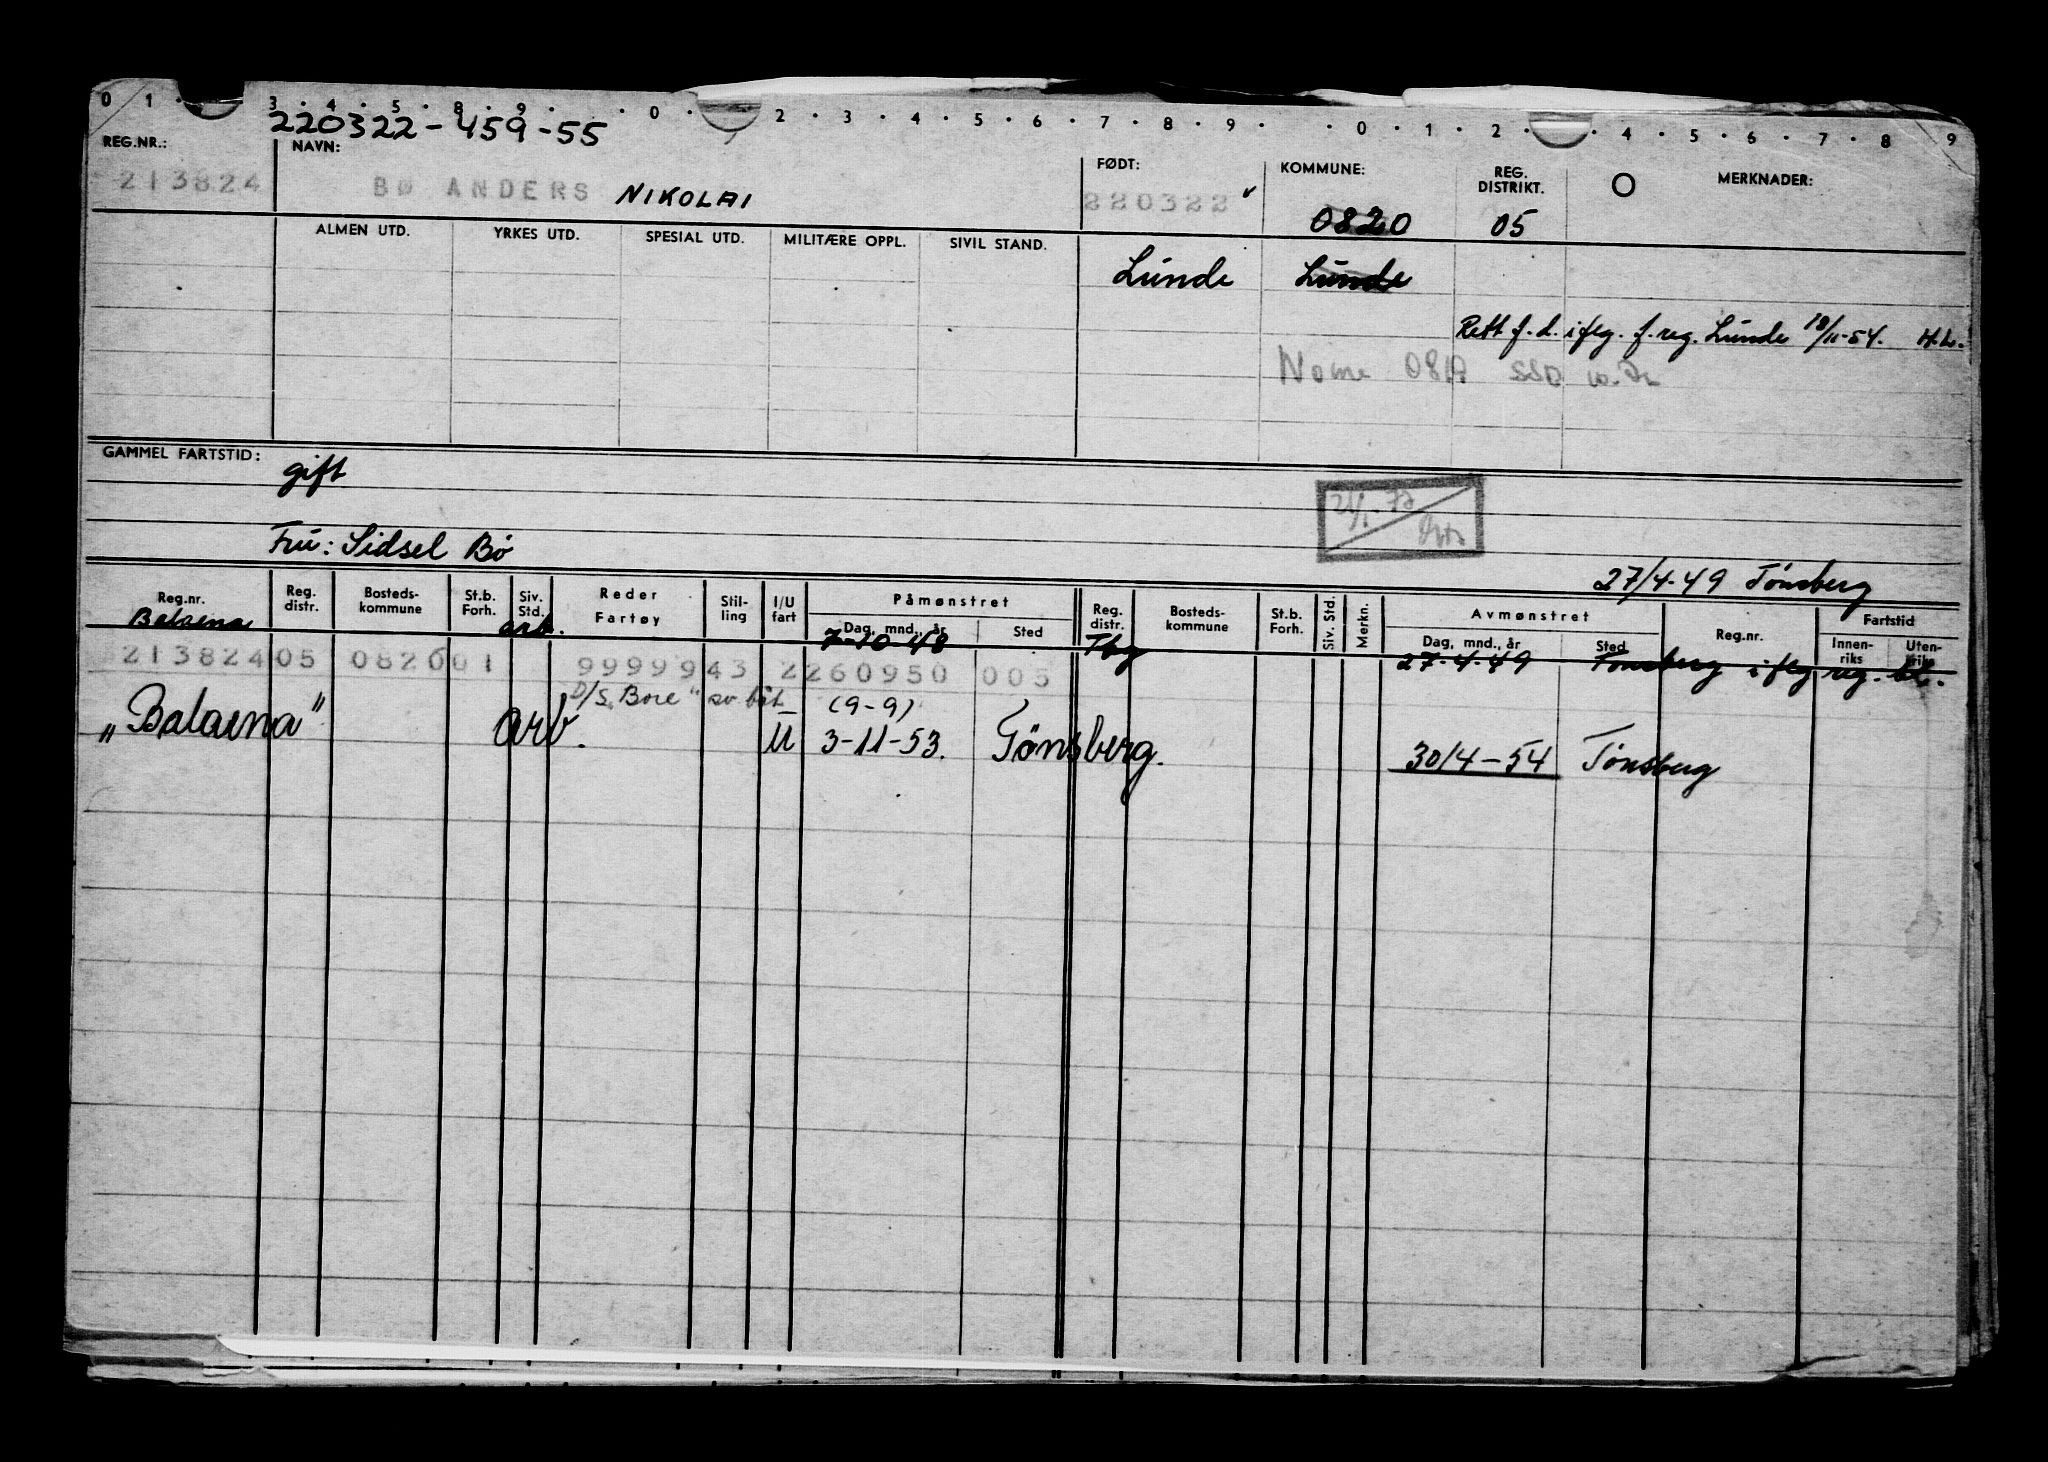 0 1 · 3 · 4 · 5 · 8 · 9 · · 0 · · 2 · 3 · 4 · 5 · 6 · 7 · 8 · 9 · · 0 · 1 · 2 · · 4 · 5 · 6 · 7 · 8 9
220322-459-55
REG.NR.: NAVN: FØDT: KOMMUNE: REG. DISTRIKT. MERKNADER:
213824 BØ ANDERS NIKOLAI 220322 0820 05
ALMEN UTD. YRKES UTD. SPESIAL UTD. MILITÆRE OPPL. SIVIL STAND.
Lunde Lunde
Rett f. d. i flg. f. reg. Lunde 18/11-54. H.L.
Nome
GAMMEL FARTSTID:
gift
Fru: Sidsel Bø
27/4-49 Tønsberg
Reg.nr. Reg. distr. Bosteds-kommune St.b. Forh. Siv. Std. Reder Fartøy Stil-ling I/U fart Påmønstret Dag, mnd., år Sted Reg. distr. Bosteds-kommune St.b. Forh. Siv. Std. Merkn. Avmønstret Dag, mnd., år Sted Reg.nr. Fartstid Innen-riks Uten-riks
Balaena arb. 7-10-48 Tbg 27-4-49 Tønsberg i flg reg.
213824 05 082001 9999943 2 260950 005
D/S "Bore" (9-9)
"Balaena" arb. U 3-11-53. Tønsberg. 30/4-54 Tønsberg